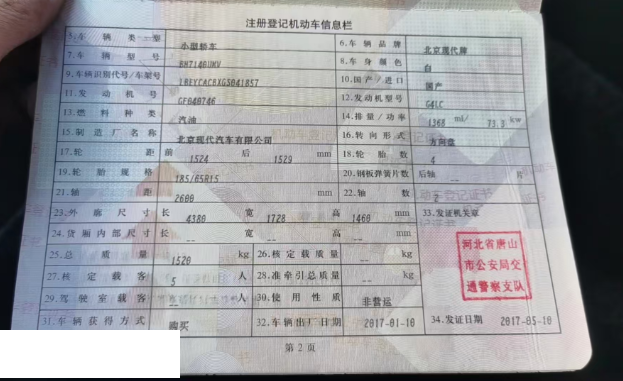 注册登记机动车信息栏
5.车辆类型 小型轿车 6.车辆品牌 北京现代牌
7.车辆型号 BH7140UMV 8.车身颜色 白
9.车辆识别代号/车架号 10.国产/进口 国产
11.发动机号 GF040746 12.发动机型号 G4LC
13.燃料种类 汽油 14.排量/功率 1368 ml/ 73.3 kw
15.制造厂名称 北京现代汽车有限公司 16.转向形式 方向盘
17.轮距 前 1524 后 1529 mm 18.轮胎数 4
19.轮胎规格 185/65R15 20.钢板弹簧片数 后轴 -- 片
21.轴距 2600 mm 22.轴数 2
23.外廓尺寸 长 4380 宽 1728 高 1460 mm 33.发证机关章
24.货厢内部尺寸 长 -- 宽 -- 高 -- mm
25.总质量 1520 kg 26.核定载质量 -- kg
27.核定载客 5 人 28.准牵引总质量 -- kg
河北省唐山
市公安局交
通警察支队
29.驾驶室载客 -- 人 30.使用性质 非营运
31.车辆获得方式 购买 32.车辆出厂日期 2017-01-10 34.发证日期 2017-05-10
第2页